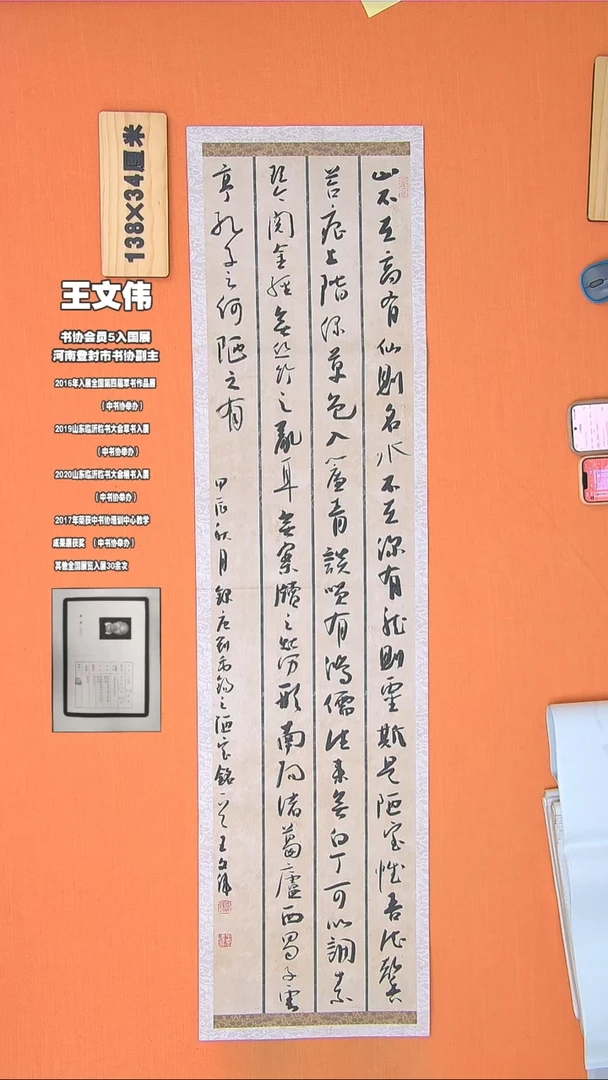 138×34厘米
王文伟
书协会员5入国展
河南登封市书协副主
2016年入展全国第四届草书作品展
（中书协举办）
2019山东临沂临书大会草书入展
（中书协举办）
2020山东临沂临书大会楷书入展
（中书协举办）
2017年荣获中书协培训中心教学
成果展获奖 （中书协举办）
其他全国展览入展30余次
山不在高有仙則名水不在深有龍則靈斯是陋室惟吾德馨
苔痕上階綠草色入簾青談笑有鴻儒往來無白丁可以調素
琴閱金經無絲竹之亂耳無案牘之勞形南陽諸葛廬西蜀子雲
亭孔子云何陋之有
甲辰秋月錄唐劉禹錫之陋室銘一首王文偉